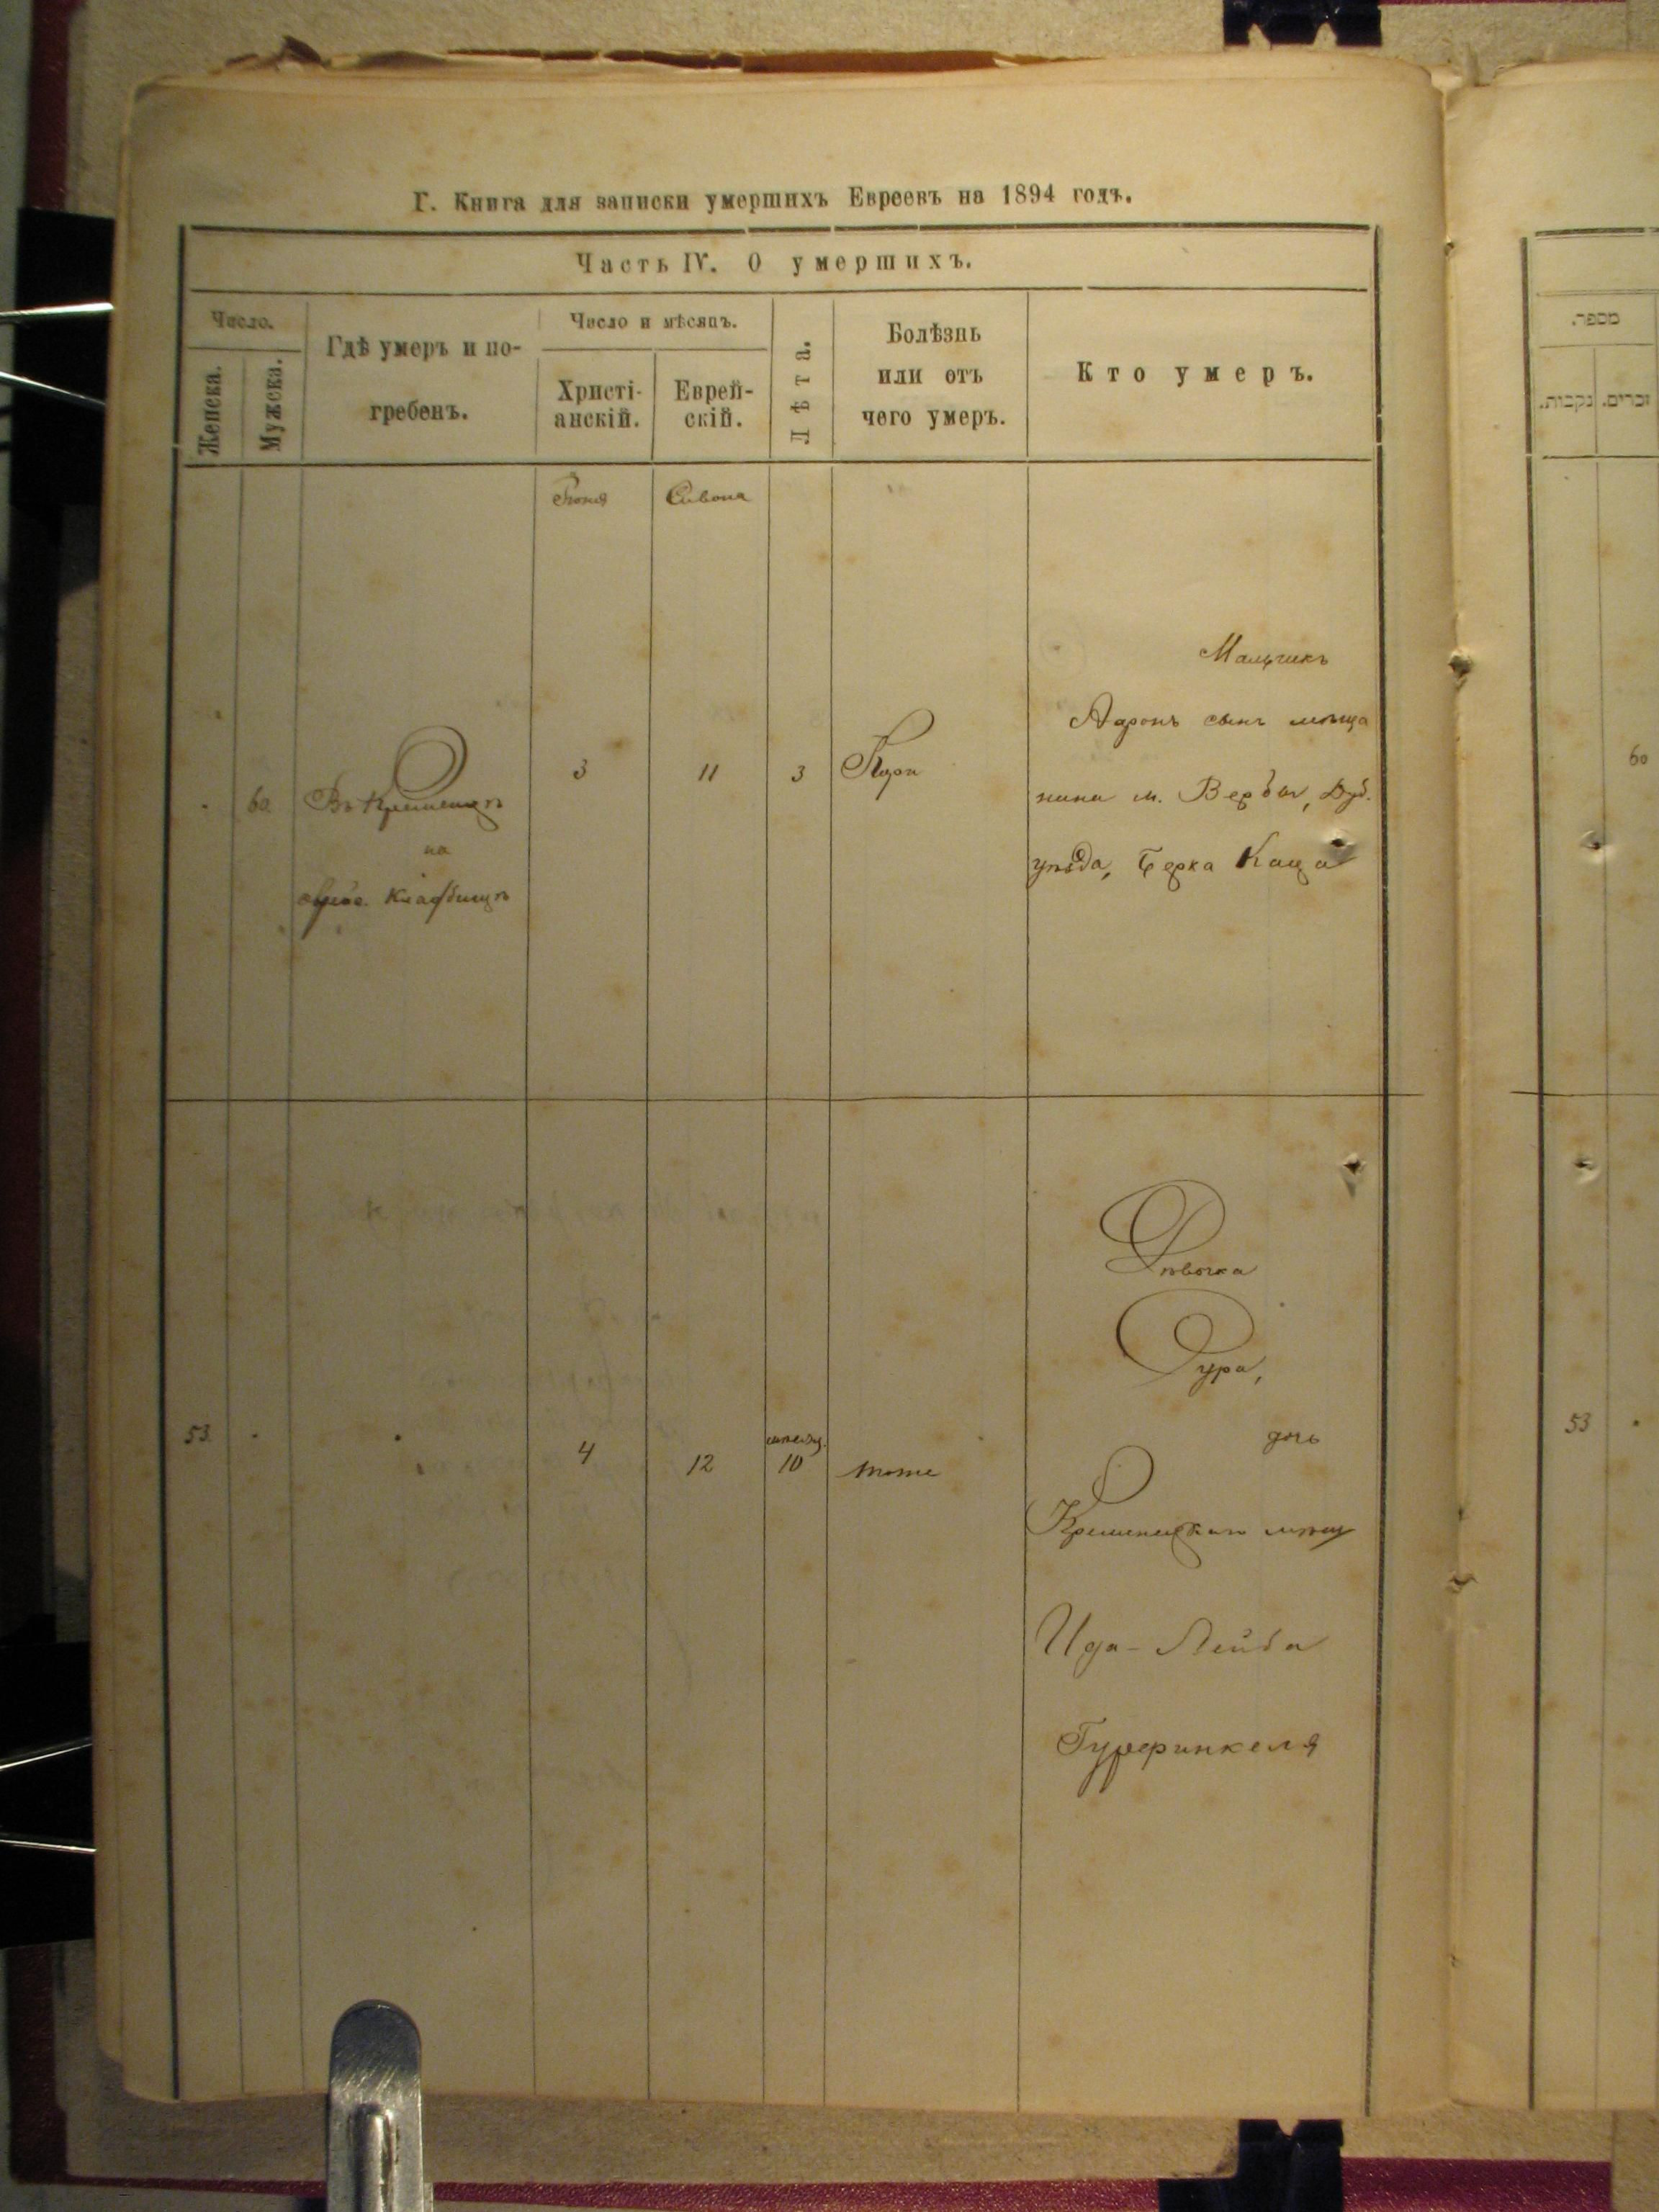 Г. Книга для записки умершихъ Евреевъ на 1894 годъ.
Часть IV. О умершихъ.
Число.
Женска.
Мужска.
Гдѣ умеръ и по-
гребенъ.
Число и мѣсяцъ.
Христі-
анскій.
Еврей-
скій.
Лѣта.
Болѣзнь
или отъ
чего умеръ.
Кто умеръ.
Іюня
Сивона
60.
Въ Кременцѣ
на
еврейс. кладбищѣ
3
11
3
Кори
Мальчикъ
Ааронъ сынъ мѣща
нина м. Вербы, Дуб.
уѣзда, Берка Каца
53.
4
12
10
тоже
Дѣвочка
Сура,
дочь
Кременецкаго мѣщ
Ида-Лейба
Гурфинкеля
מספר.
נקבות.
זכרים.
60
53